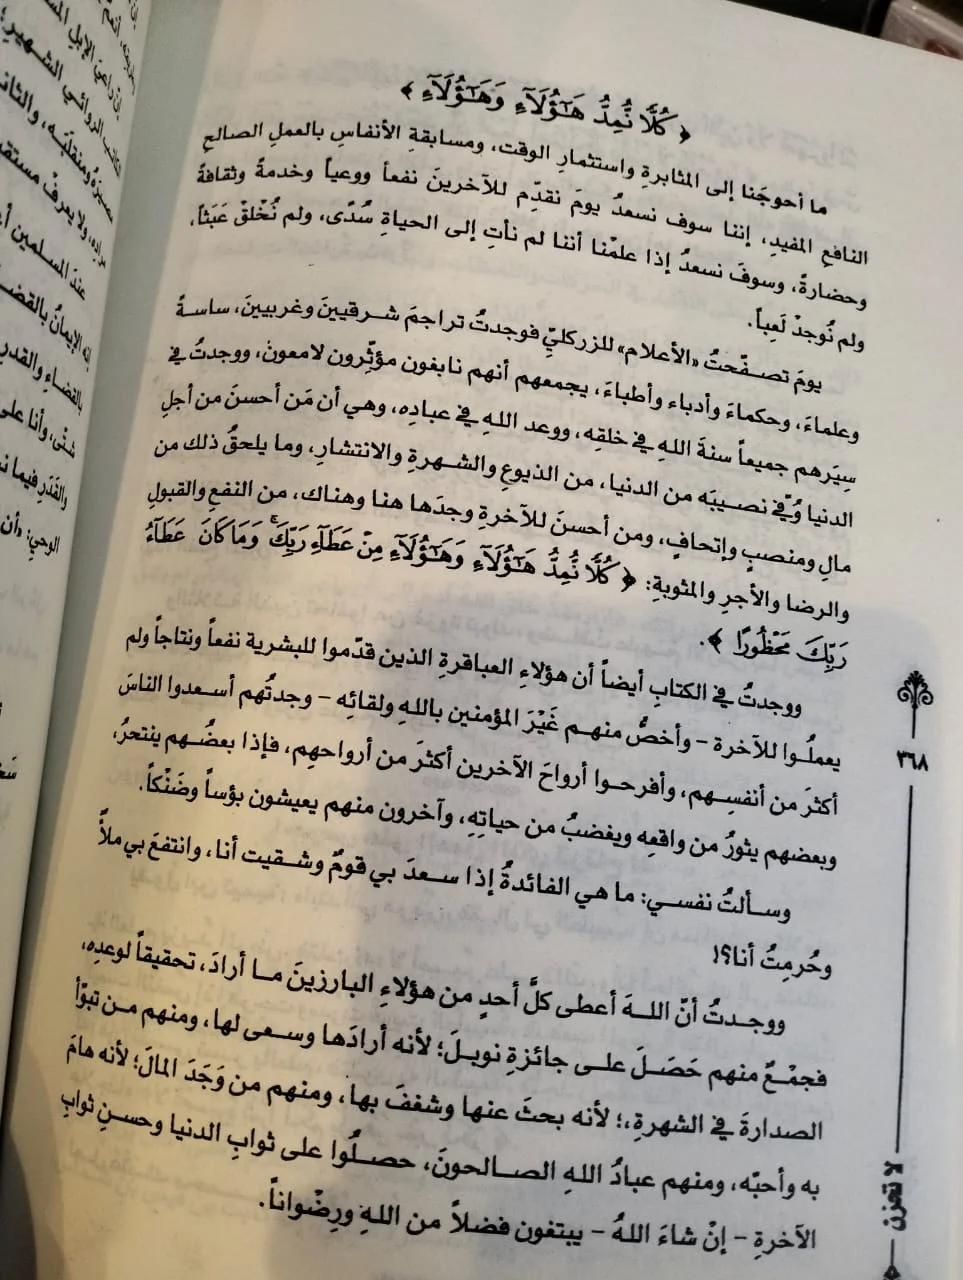 ﴿ كُلًّا نُّمِدُّ هَـٰٓؤُلَآءِ وَهَـٰٓؤُلَآءِ ﴾
ما أحوجَنا إلى المثابرةِ واستثمارِ الوقت، ومسابقةِ الأنفاسِ بالعملِ الصالحِ
النافعِ المفيدِ، إننا سوف نسعدُ يومَ نقدّم للآخرينَ نفعاً ووعياً وخدمةً وثقافةً
وحضارةً، وسوفَ نسعدُ إذا علمْنا أننا لم نأتِ إلى الحياةِ سُدًى، ولم نُخْلقْ عَبَثاً،
ولم نُوجدْ لَعِباً.
يومَ تصفّحتُ «الأعلام» للزركليِّ فوجدتُ تراجمَ شرقيينَ وغربيينَ، ساسةً
وعلماءَ، وحكماءَ وأدباء وأطباءَ، يجمعهم أنهم نابغون مؤثّرون لامعونَ، ووجدتُ في
سِيَرهم جميعاً سنةَ اللهِ في خلقِه، ووعد اللهِ في عبادِه، وهي أن مَن أحسنَ من أجلِ
الدنيا وُفّي نصيبَه من الدنيا، من الذيوعِ والشهرةِ والانتشارِ، وما يلحقُ ذلك من
مالٍ ومنصبٍ وإتحافٍ، ومن أحسنَ للآخرةِ وجدَها هنا وهناك، من النفعِ والقبولِ
والرضا والأجرِ والمثوبةِ: ﴿ كُلًّا نُّمِدُّ هَـٰٓؤُلَآءِ وَهَـٰٓؤُلَآءِ مِنْ عَطَآءِ رَبِّكَ ۚ وَمَا كَانَ عَطَآءُ
رَبِّكَ مَحْظُورًا ﴾.
ووجدتُ في الكتابِ أيضاً أن هؤلاءِ العباقرةِ الذين قدّموا للبشرية نفعاً ونتاجاً ولم
يعملُوا للآخرة – وأخصُّ منهم غَيْرَ المؤمنين باللهِ ولقائِه – وجدتُهم أسعدوا الناسَ
أكثرَ من أنفسِهم، وأفرحوا أرواحَ الآخرين أكثرَ من أرواحهِم، فإذا بعضُهم ينتحرُ،
وبعضهم يثورُ من واقعِه ويغضبُ من حياتِهِ، وآخرون منهم يعيشون بؤساً وضَنْكاً.
وسألتُ نفسي: ما هي الفائدةُ إذا سعدَ بي قومٌ وشقيت أنا، وانتفعَ بي ملأٌ
وحُرمِتُ أنا؟!
ووجدتُ أنّ اللهَ أعطى كلَّ أحدٍ من هؤلاءِ البارزينَ ما أرادَ، تحقيقاً لوعدِه،
فجمْعٌ منهم حَصَلَ على جائزةِ نوبلَ؛ لأنه أرادَها وسعى لها، ومنهم من تبوّأ
الصدارةَ في الشهرةِ،؛ لأنه بحثَ عنها وشغفَ بها، ومنهم من وَجَدَ المالَ؛ لأنه هامَ
به وأحبّه، ومنهم عبادُ اللهِ الصالحونَ، حصلُوا على ثوابِ الدنيا وحسنِ ثوابِ
الآخرةِ – إنْ شاءَ اللهُ – يبتغون فضلاً من اللهِ ورِضْواناً.
٣٦٨
لا تحزن